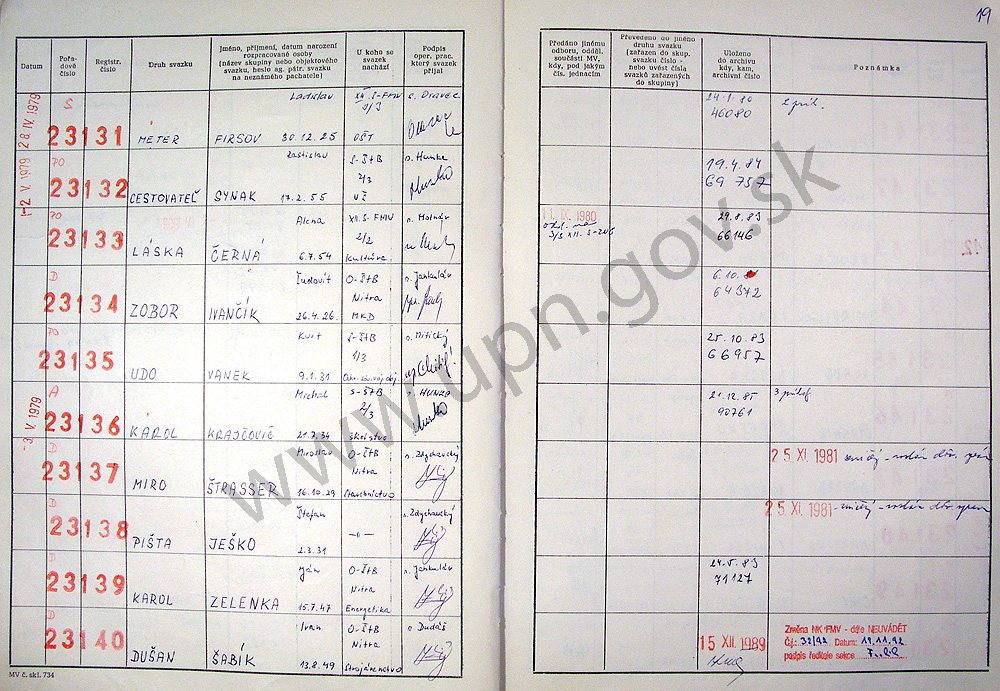 19
Datum
Pořadové číslo
Registr. číslo
Druh svazku
Jméno, příjmení, datum narození
rozpracované osoby
(název skupiny nebo objektového
svazku, heslo ag. pátr. svazku
na neznámého pachatele)
U koho se
svazek
nachází
Podpis
oper. prac.
který svazek
přijal
Předáno jinému
odboru, odděl.
součásti MV,
kdy, pod jakým
čís. jednacím
Převedeno do jiného
druhu svazku
(zařazen do skup.
svazku číslo -
nebo uvést čísla
svazků zařazených
do skupiny)
Uloženo
do archivu
kdy, kam,
archivní číslo
Poznámka
28 IV. 1979
S
23131
METER
Ladislav
FIRSOV 30.12.25
XII. S-FMV
OŠT
24.1.80
46080
2 příl.
1-2. V. 1979
PO
23132
CESTOVATEĽ
Rastislav
SYNAK 17.2.55
S-ŠtB
2/3
p. Hunka
19.4.84
69757
PO
23133
LÁSKA
Alena
ČERNÁ 6.7.54
XII. S-FMV
2/2
Kultúra
p. Molnár
11. IX. 1980
29.8.83
66146
D
23134
ZOBOR
Ľudovít
IVANČÍK 26.4.26.
O-ŠtB
Nitra
MKD
p. Jankuláv
6.10.
64372
PO
23135
UDO
Kurt
VANEK 9.1.31
S-ŠtB
1/3
25.10.83
66957
-3. V. 1979
A
23136
KAROL
Michal
KRAJČOVIČ 21.7.34
S-ŠtB
2/3
školstvo
p. HUNKA
21.12.85
90761
3 příloh
D
23137
MIRO
Miroslav
ŠTRASSER 16.10.29
O-ŠtB
Nitra
Stavebníctvo
p. Zdychavský
25. XI. 1981
D
23138
PIŠTA
Štefan
JEŠKO 2.3.31
—"—
p. Zdychavský
25. XI. 1981
D
23139
KAROL
Ján
ZELENKA 15.7.47
O-ŠtB
Nitra
Energetika
p. Jankuláv
24.5.83
71127
D
23140
DUŠAN
Ivan
ŠABÍK 13.8.49
O-ŠtB
Nitra
Strojárenstvo
p. Dudáš
15 XII. 1989
Změna NK FMV - dále NEUVÁDĚT
Č.j.: 32/92 Datum: 19.11.92
podpis ředitele sekce
MV č. skl. 734
www.upn.gov.sk